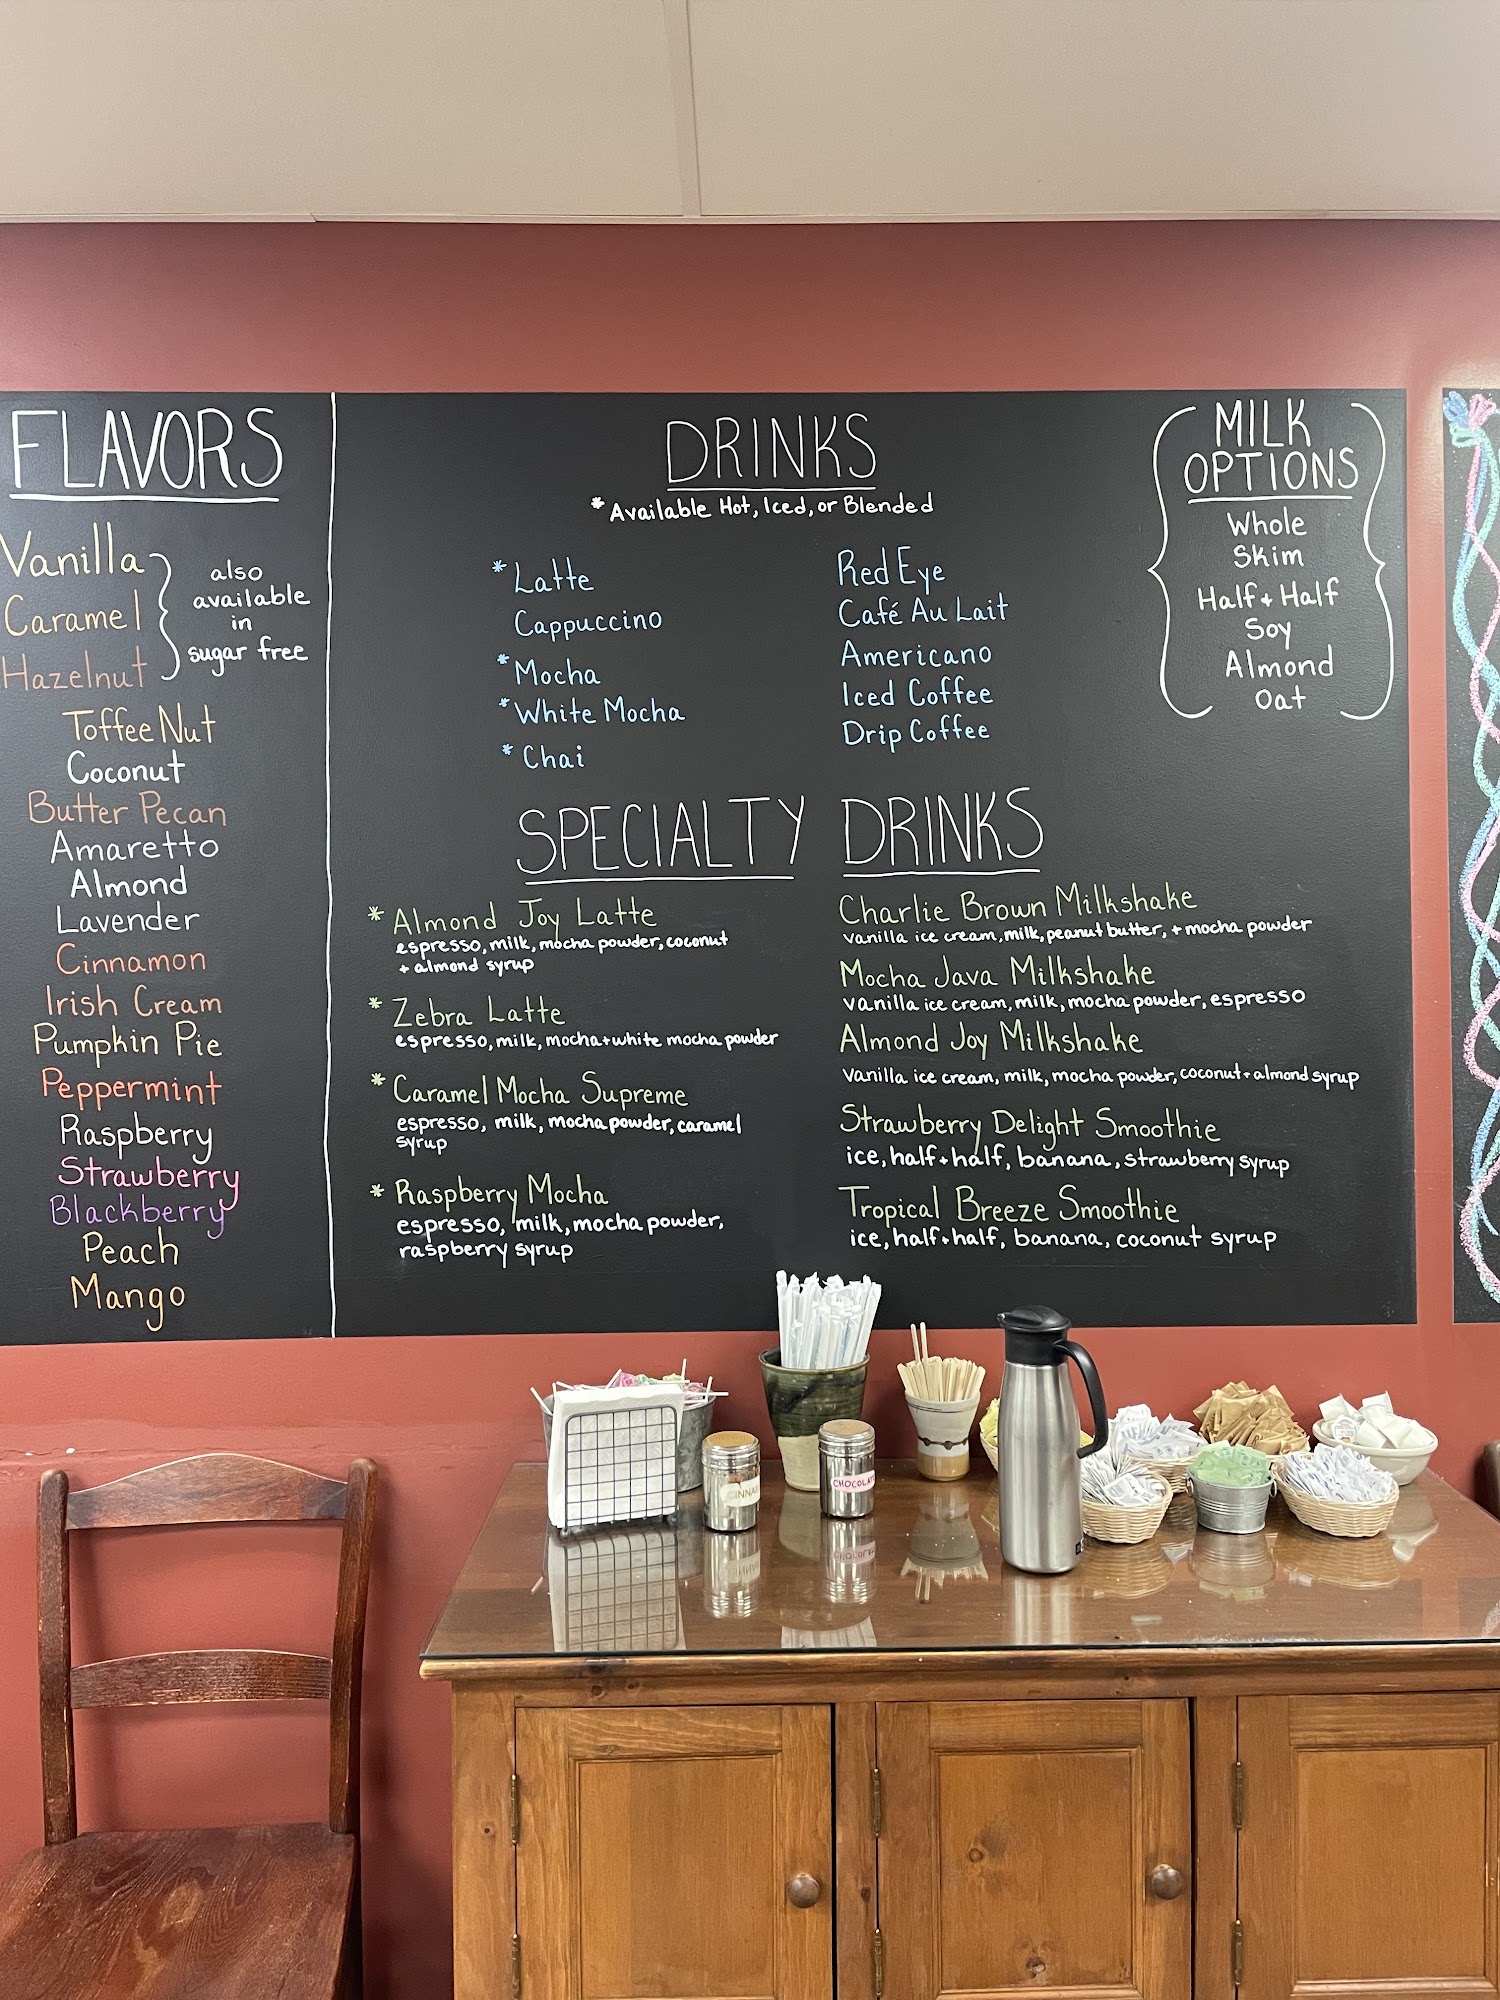 FLAVORS
Vanilla
Caramel
Hazelnut
also
available
in
sugar free
Toffee Nut
Coconut
Butter Pecan
Amaretto
Almond
Lavender
Cinnamon
Irish Cream
Pumpkin Pie
Peppermint
Raspberry
Strawberry
Blackberry
Peach
Mango
DRINKS
*Available Hot, Iced, or Blended
*Latte
Cappuccino
*Mocha
*White Mocha
*Chai
Red Eye
Café Au Lait
Americano
Iced Coffee
Drip Coffee
MILK
OPTIONS
Whole
Skim
Half + Half
Soy
Almond
Oat
SPECIALTY DRINKS
*Almond Joy Latte
espresso, milk, mocha powder, coconut
+ almond syrup
*Zebra Latte
espresso, milk, mocha + white mocha powder
*Caramel Mocha Supreme
espresso, milk, mocha powder, caramel
syrup
*Raspberry Mocha
espresso, milk, mocha powder,
raspberry syrup
Charlie Brown Milkshake
vanilla ice cream, milk, peanut butter, + mocha powder
Mocha Java Milkshake
vanilla ice cream, milk, mocha powder, espresso
Almond Joy Milkshake
vanilla ice cream, milk, mocha powder, coconut + almond syrup
Strawberry Delight Smoothie
ice, half + half, banana, strawberry syrup
Tropical Breeze Smoothie
ice, half + half, banana, coconut syrup
CINNA
CHOCOLAT